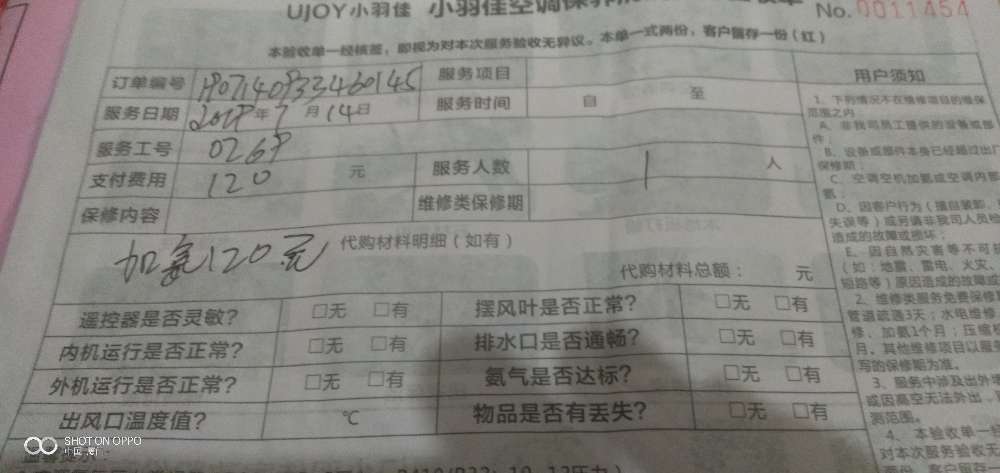 UJOY小羽佳 小羽佳空调保养
No.0011454
本验收单一经核签，即视为对本次服务验收无异议。本单一式两份，客户留存一份（红）
订单编号 服务项目
服务日期 年7月14日 服务时间 自 至
服务工号
支付费用 120 元 服务人数 1 人
保修内容 维修类保修期
加氨120元 代购材料明细（如有）
代购材料总额： 元
遥控器是否灵敏？ □无 □有 摆风叶是否正常？ □无 □有
内机运行是否正常？ □无 □有 排水口是否通畅？ □无 □有
外机运行是否正常？ □无 □有 氨气是否达标？ □无 □有
出风口温度值？ ℃ 物品是否有丢失？ □无 □有
用户须知
1、下列情况不在维修项目的维保
范围之内
A、非我司员工提供的设备或部
件
B、设备或部件本身已经超过出厂
保修期
C、空调空机加氨或空调内部
氨
D、因客户行为（擅自装卸、
失误等）或另请非我司人员检
造成的故障或损坏
E、因自然灾害等不可抗
（如：地震、雷电、火灾、
短路等）原因造成的故障或
2、维修类服务免费保修
管道疏通3天；水电维修
修，加氨1个月；压缩
月，其他维修项目以服务
写的保修期为准。
3、服务中涉及出外
或因高空无法外出，
测范围。
4、本验收单一
对本次服务验收无
SHOT ON OPPO